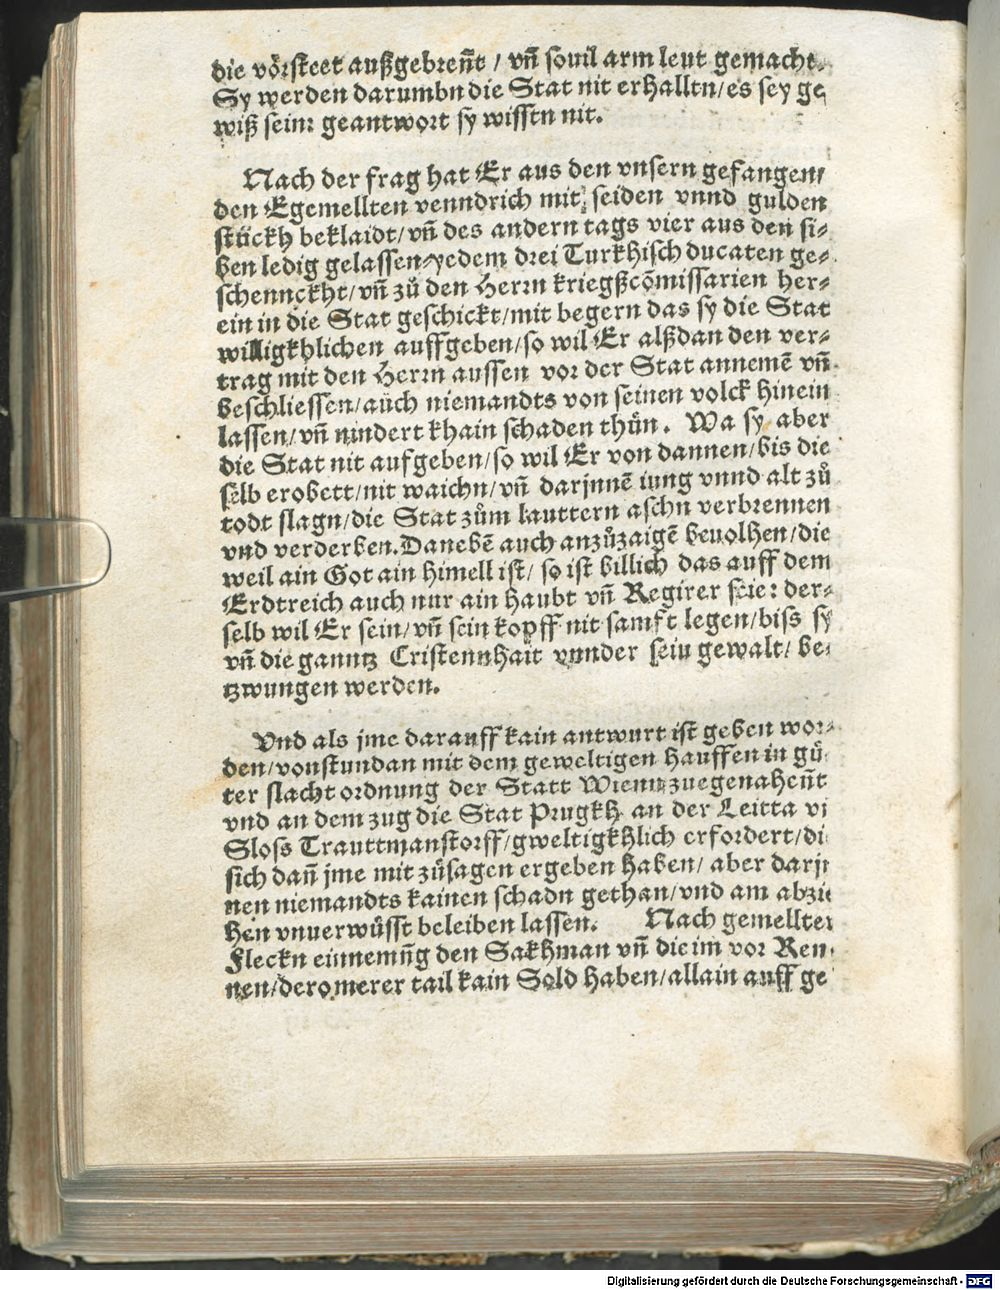 die vörsteet außgebreñt / vñ souil arm leut gemacht.
Sy werden darumbn die Stat nit erhalltn/es sey ge
wiß seinr geantwort sy wisstn nit.
Nach der frag hat Er aus den vnsern gefangen/
den Egemellten venndrich mit seiden vnnd gulden
stückh beklaidt/vñ des andern tags vier aus den si-
ben ledig gelassen yedem drei Turkhisch ducaten ge-
schennckht/vñ zů den Herrn kriegßcõmissarien her-
ein in die Stat geschickt/mit begern das sy die Stat
willigkhlichen auffgeben/so wil Er alßdan den ver-
trag mit den Herrn aussen vor der Stat annemē vñ
beschliessen/auch niemandts von seinen volck hinein
lassen/vñ nindert khain schaden thůn. Wa sy aber
die Stat nit aufgeben/so wil Er von dannen/bis die
selb erobett/nit waichn/vñ darjnnē iung vnnd alt zů
todt slagn/die Stat zům lauttern aschn verbrennen
vnd verderben. Danebē auch anzůzaigē beuolhen/die
weil ain Got ain himell ist/ so ist billich das auff dem
Erdtreich auch nur ain haubt vñ Regirer seie: der-
selb wil Er sein/vñ sein kopff nit samft legen/biss sy
vñ die ganntz Cristennhait vnnder sein gewalt/ be-
tzwungen werden.
Vnd als jme darauff kain antwurt ist geben wor-
den/vonstundan mit dem geweltigen hauffen in gů
ter slacht ordnung der Statt Wienn zuegenaheñt
vnd an dem zug die Stat Prugkh an der Leitta vñ
Sloss Trauttmanstorff/gweltigkhlich erfordert/di
sich dañ jme mit zůsagen ergeben haben/ aber darjn
nen niemandts kainen schadn gethan/vnd am abzie
hen vnuerwůsst beleiben lassen. Nach gemellter
Fleckn einnemñg den Sakhman vñ die im vor Ren-
nen/der merer tail kain Sold haben/allain auff ge
Digitalisierung gefördert durch die Deutsche Forschungsgemeinschaft - DFG